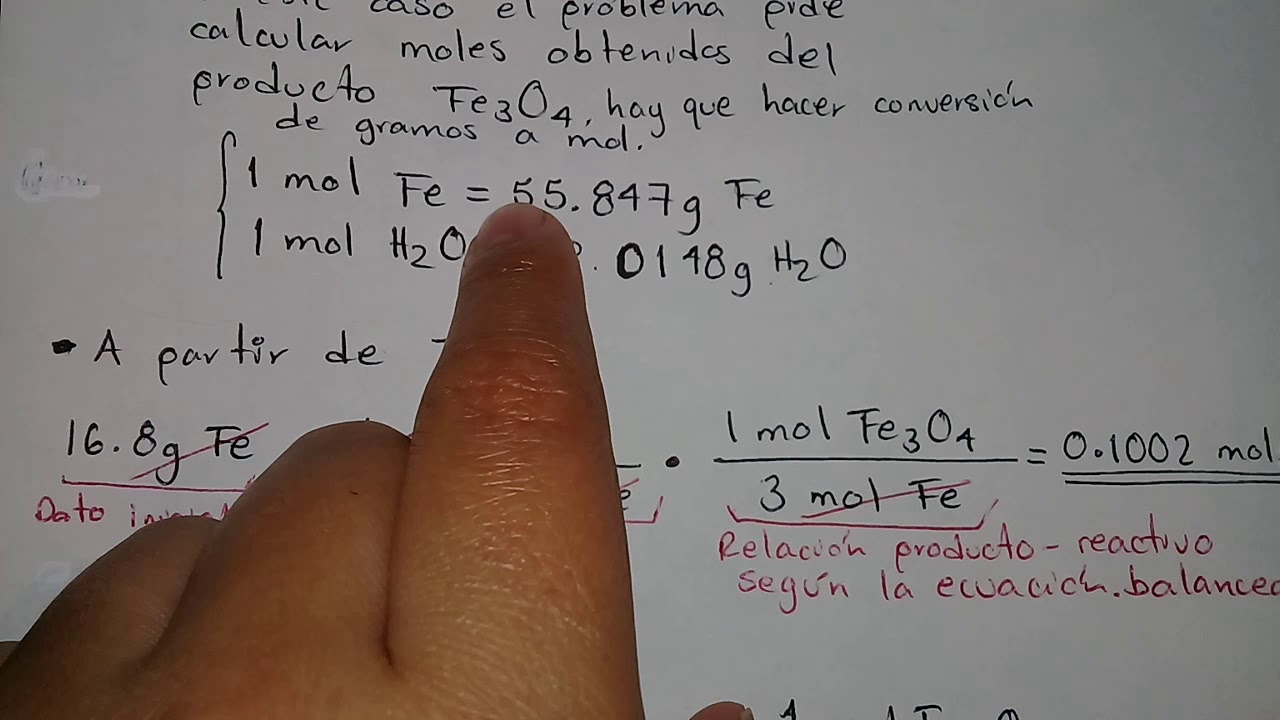 caso el problema pide
calcular moles obtenidos del
producto Fe3O4, hay que hacer conversión
de gramos a mol.
1 mol Fe = 55.847g Fe
1 mol H2O .0148g H2O
• A partir de
16.8g Fe • 1 mol Fe3O4 = 0.1002 mol
3 mol Fe
Dato
Relación producto - reactivo
según la ecuación.